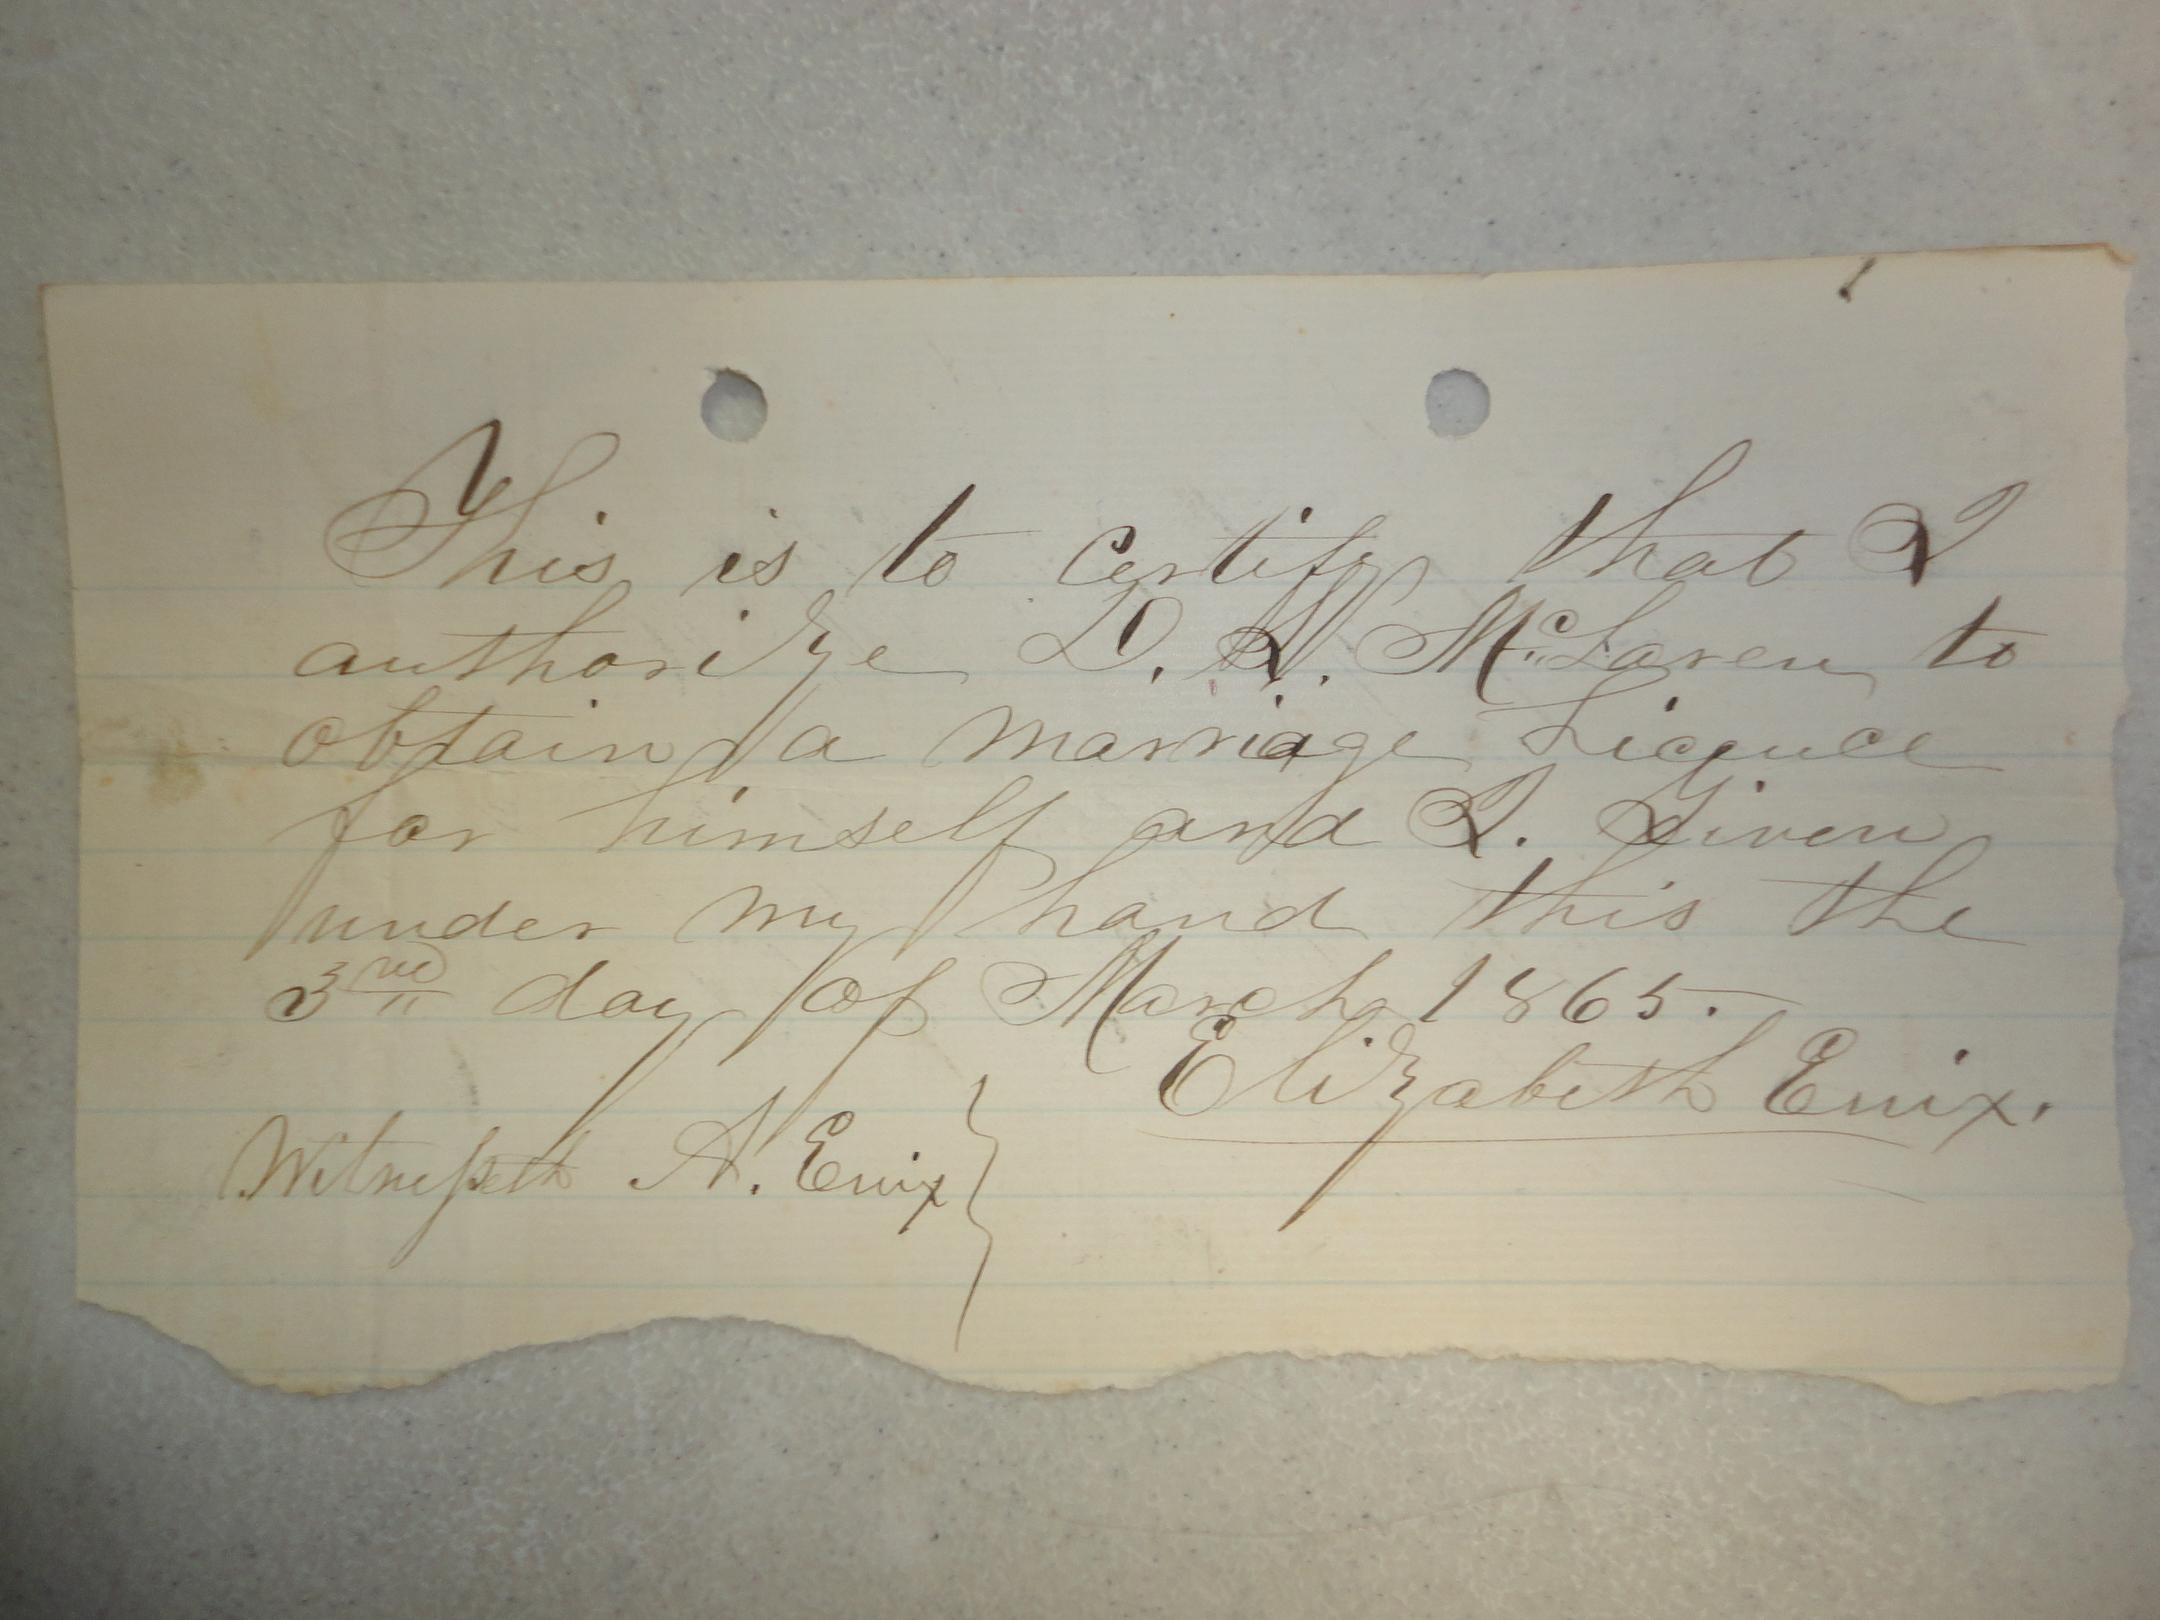 This is to Certify that I
authorize D. S. McLaren to
obtain a marriage Licence
for himself and I. Given
under my hand this the
3rd day of March 1865.
Elizabeth Enix.
Witnesseth A. Enix